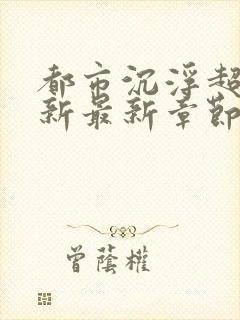 都市沉浮超
新最新章節
曾蔭權